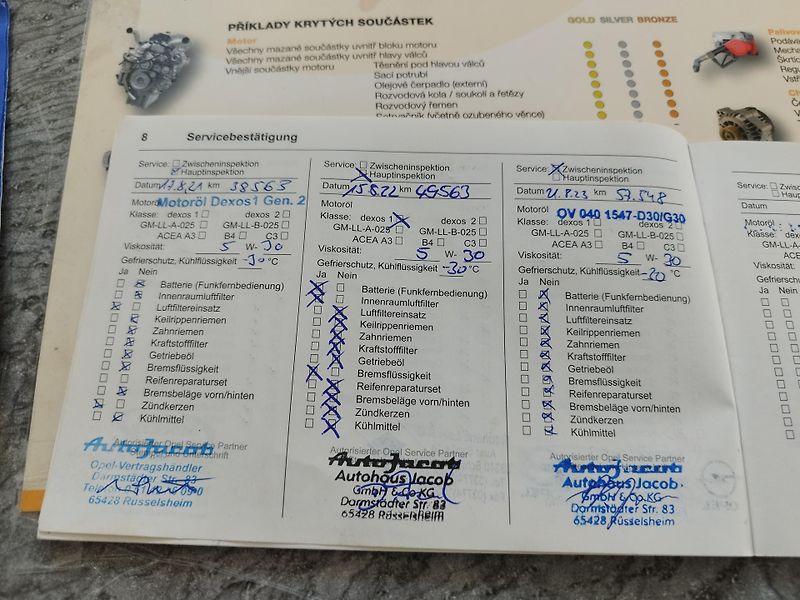 PŘÍKLADY KRYTÝCH SOUČÁSTEK
GOLD SILVER BRONZE
Motor
Všechny mazané součástky uvnitř bloku motoru
Všechny mazané součástky uvnitř hlavy válců
Vnější součástky motoru
Těsnění pod hlavou válců
Sací potrubí
Olejové čerpadlo (externí)
Rozvodová kola / soukolí a řetězy
Rozvodový řemen
Setrvačník (včetně ozubeného věnce)
8 Servicebestätigung
Service: Zwischeninspektion
Hauptinspektion
Datum 17.8.21 km 38563
Motoröl Motoröl Dexos1 Gen. 2
Klasse: dexos 1 dexos 2
GM-LL-A-025 GM-LL-B-025
ACEA A3 B4 C3
Viskosität: 5 W- 30
Gefrierschutz, Kühlflüssigkeit -30 °C
Ja Nein
Batterie (Funkfernbedienung)
Innenraumluftfilter
Luftfiltereinsatz
Keilrippenriemen
Zahnriemen
Kraftstofffilter
Getriebeöl
Bremsflüssigkeit
Reifenreparaturset
Bremsbeläge vorn/hinten
Zündkerzen
Kühlmittel
Autorisierter Opel Service Partner
AutoJacob
Opel-Vertragshändler
Darmstädter Str. 83
65428 Rüsselsheim
Service: Zwischeninspektion
Hauptinspektion
Datum 15.8.22 km 49563
Motoröl
Klasse: dexos 1 dexos 2
GM-LL-A-025 GM-LL-B-025
ACEA A3 B4 C3
Viskosität: 5 W- 30
Gefrierschutz, Kühlflüssigkeit -30 °C
Ja Nein
Batterie (Funkfernbedienung)
Innenraumluftfilter
Luftfiltereinsatz
Keilrippenriemen
Zahnriemen
Kraftstofffilter
Getriebeöl
Bremsflüssigkeit
Reifenreparaturset
Bremsbeläge vorn/hinten
Zündkerzen
Kühlmittel
Autorisierter Opel Service Partner
AutoJacob
Autohaus Jacob
GmbH & Co.KG
Darmstädter Str. 83
65428 Rüsselsheim
Service: Zwischeninspektion
Hauptinspektion
Datum 21.8.23 km 57.548
Motoröl OV 040 1547-D30/G30
Klasse: dexos 1 dexos 2
GM-LL-A-025 GM-LL-B-025
ACEA A3 B4 C3
Viskosität: 5 W- 30
Gefrierschutz, Kühlflüssigkeit -20 °C
Ja Nein
Batterie (Funkfernbedienung)
Innenraumluftfilter
Luftfiltereinsatz
Keilrippenriemen
Zahnriemen
Kraftstofffilter
Getriebeöl
Bremsflüssigkeit
Reifenreparaturset
Bremsbeläge vorn/hinten
Zündkerzen
Kühlmittel
Autorisierter Opel Service Partner
AutoJacob
Autohaus Jacob
GmbH & Co.KG
Darmstädter Str. 83
65428 Rüsselsheim
Service:
Datum
Motoröl
Klasse: dexos 1
GM-LL-A-025
ACEA A3
Viskosität:
Gefrierschutz, Kühl
Ja Nein